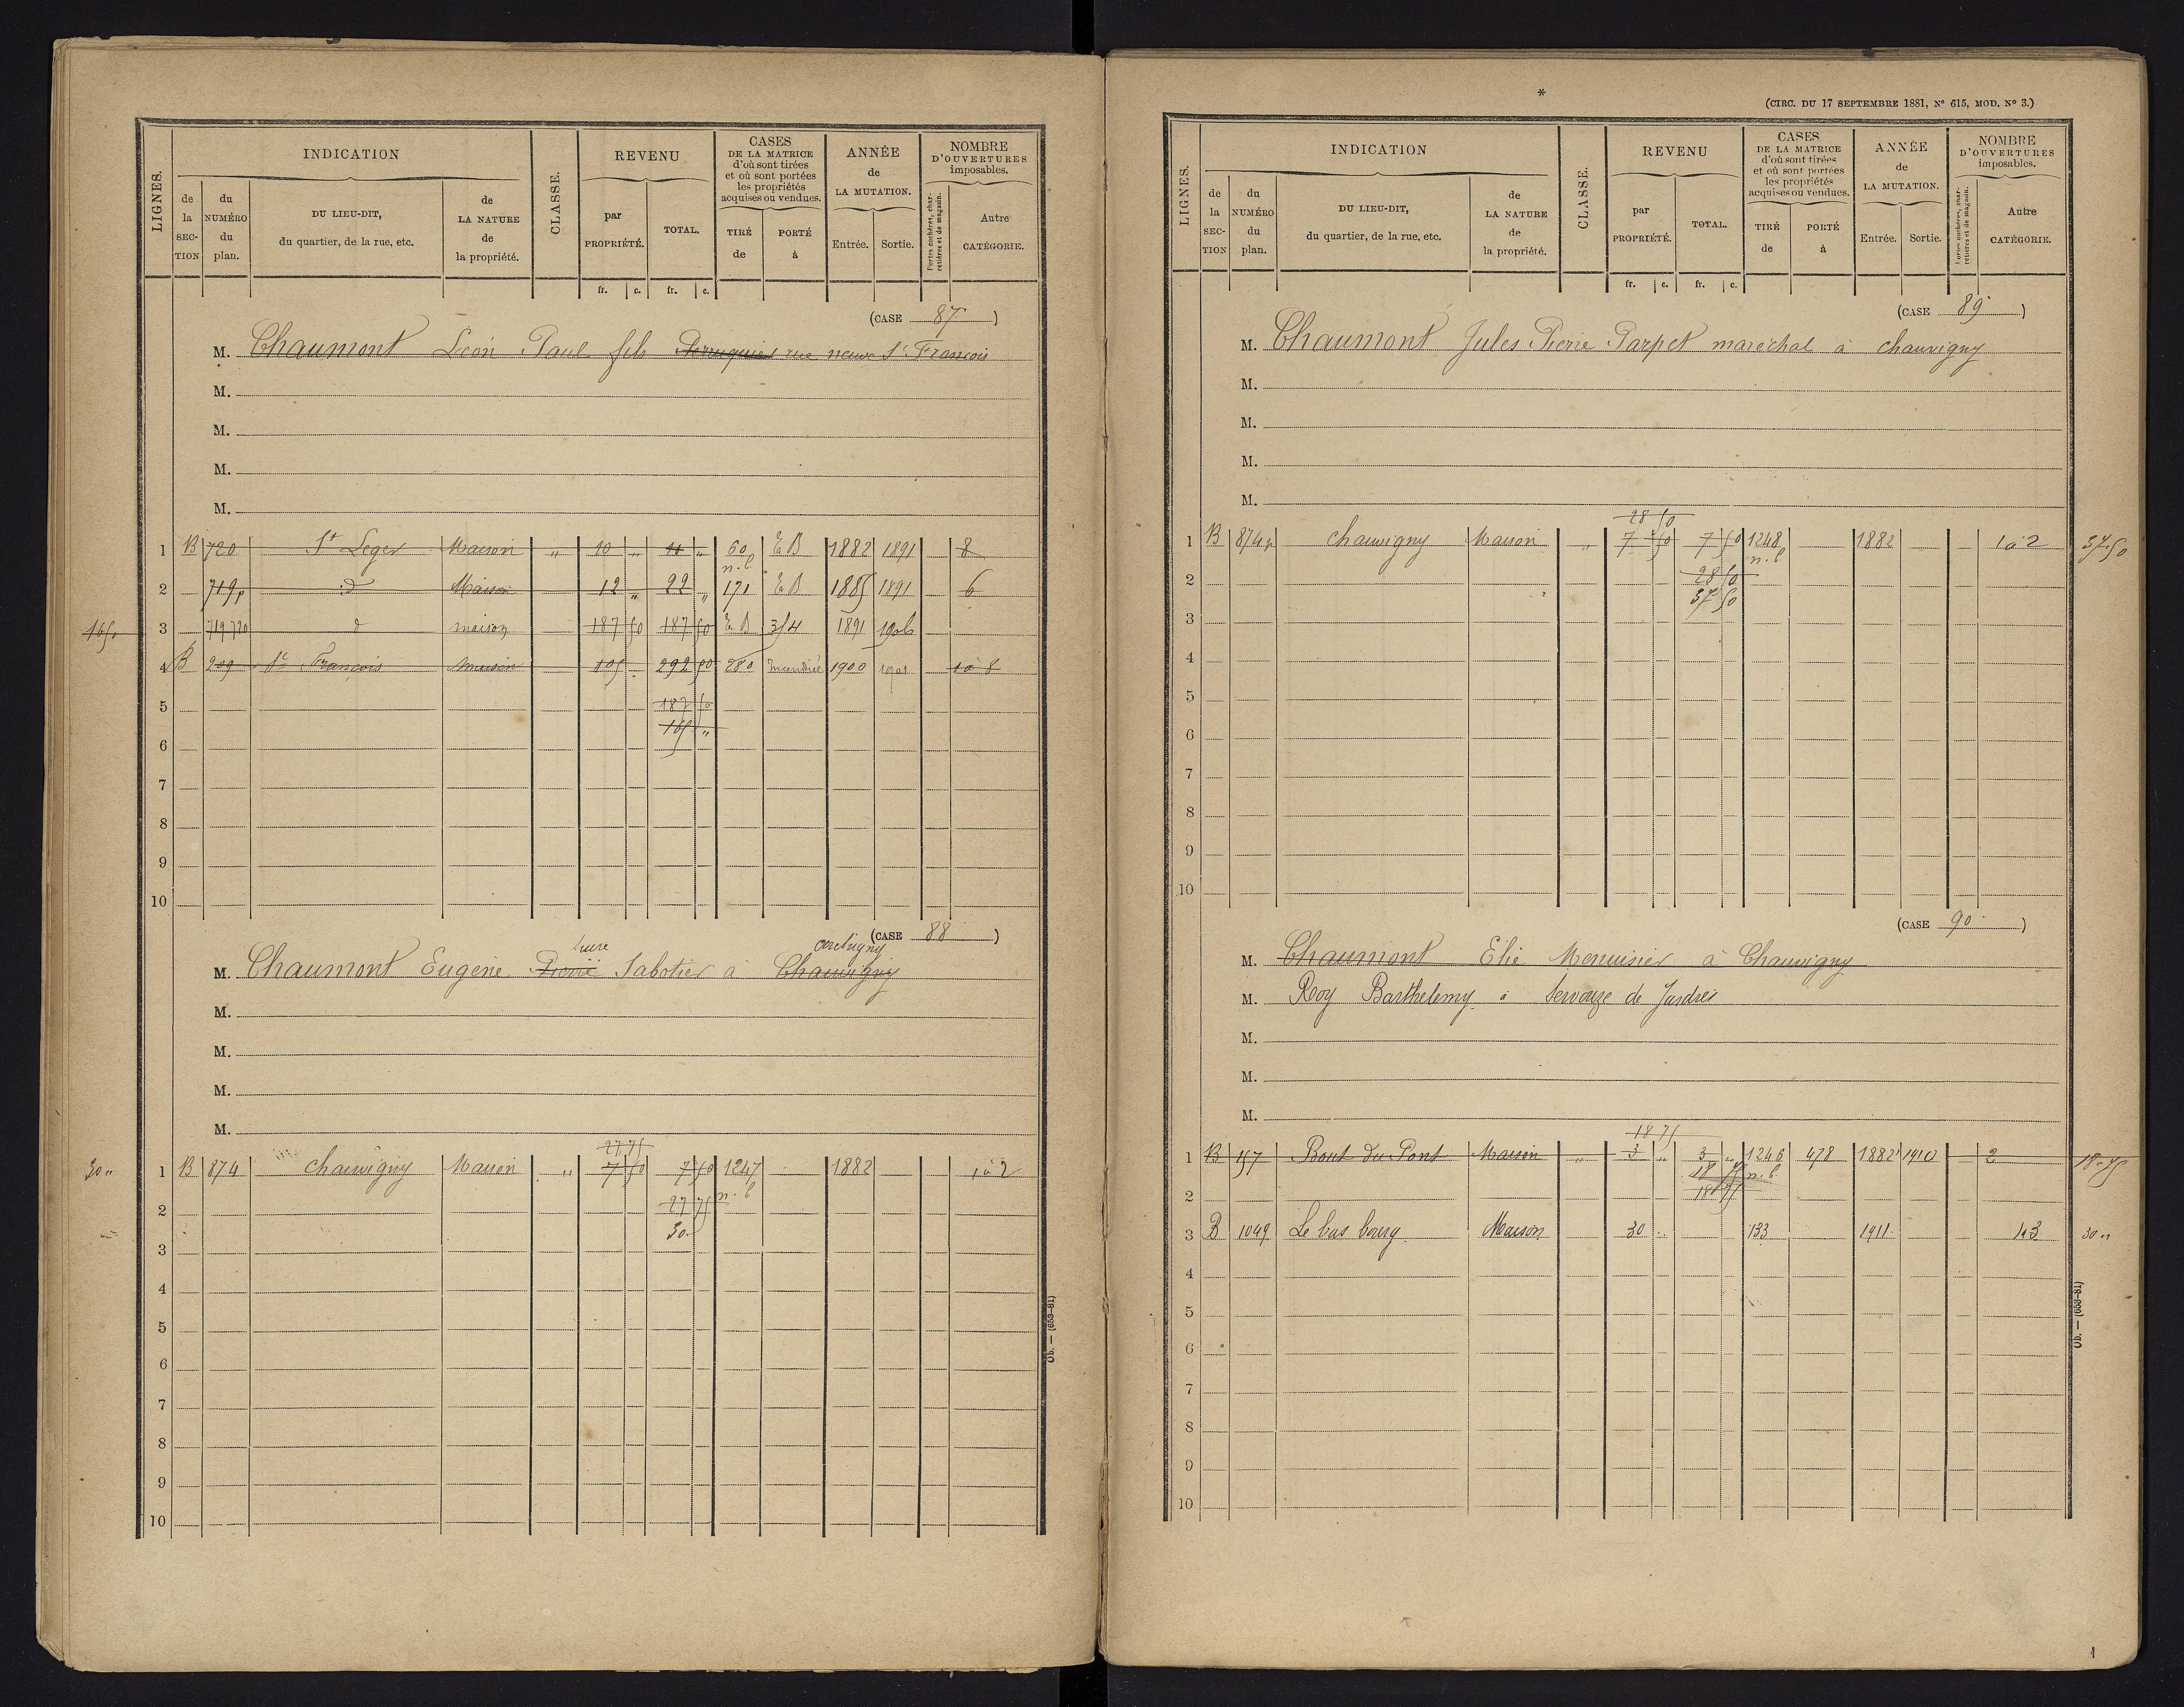 LIGNES.
INDICATION
de la SECTION
du NUMÉRO du plan.
DU LIEU-DIT, du quartier, de la rue, etc.
de LA NATURE de la propriété.
CLASSE.
REVENU
par PROPRIÉTÉ.
TOTAL.
fr. c. fr. c.
CASES DE LA MATRICE d'où sont tirées et où sont portées les propriétés acquises ou vendues.
TIRÉ de
PORTÉ à
ANNÉE de LA MUTATION.
Entrée. Sortie.
NOMBRE D'OUVERTURES imposables.
Portes cochères, charretières et de magasin.
Autre CATÉGORIE.
(CASE 87)
M. Chaumont Léon Paul fils Perruquier rue neuve St François
M.
M.
M.
M.
1 B 720 St Leger Maison " 10 " 10 " 60 E B 1882 1891 8
n.b.
2 719p d Maison 12 " 22 " 171 E B 1885 1891 6
165
3 719 720 d maison 187 50 187 50 E B 3/4 1891 1906
4 B 209 St François maison 105 292 50 280 1900 1901 1 à 8
5 187 50
165 "
6
7
8
9
10
(CASE 88)
M. Chaumont Eugène Pierre Sabotier à Chauvigny
M.
M.
M.
M.
27 75
30 "
1 B 874 chauvigny Maison " 7 50 7 50 1247 1882 1 à 2
n.b.
2 27 75
30
3
4
5
6
7
8
9
10
Ob. — (653-81)
*
(CIRC. DU 17 SEPTEMBRE 1881, N° 615, MOD. N° 3.)
LIGNES.
INDICATION
de la SECTION
du NUMÉRO du plan.
DU LIEU-DIT, du quartier, de la rue, etc.
de LA NATURE de la propriété.
CLASSE.
REVENU
par PROPRIÉTÉ.
TOTAL.
fr. c. fr. c.
CASES DE LA MATRICE d'où sont tirées et où sont portées les propriétés acquises ou vendues.
TIRÉ de
PORTÉ à
ANNÉE de LA MUTATION.
Entrée. Sortie.
NOMBRE D'OUVERTURES imposables.
Portes cochères, charretières et de magasin.
Autre CATÉGORIE.
(CASE 89)
M. Chaumont Jules Pierre Parpet maréchal à chauvigny
M.
M.
M.
M.
28 50
1 B 874p chauvigny Maison " 7 50 7 50 1248 1882 1 à 2 37.50
n.b.
2 28 50
37 50
3
4
5
6
7
8
9
10
(CASE 90)
M. Chaumont Elie Menuisier à Chauvigny
M. Roy Barthelemy à Servouze de Jardres
M.
M.
M.
18 75
1 B 157 Bout du Pont Maison " 3 " 3 " 1246 478 1882 1910 2 18.75
18 75 n.b.
2 18 75
3 B 1049 Le bas bourg Maison 30 .. 133 1911 1 à 3 30 "
4
5
6
7
8
9
10
Ob. — (653-81)
1